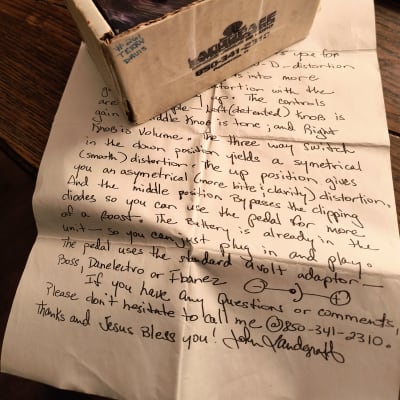 #221
TERRY
DAVIS
LANDGRAFF
850-341-2310
s you for
-D- distortion
s into more
tortion with the
g. The controls
are Left (detented) Knob is
gain Middle Knob is tone; and Right
Knob is Volume. The three way switch
in the down position yields a symetrical
(smooth) distortion. The up position gives
you an asymetrical (more bite & clarity) distortion.
And the middle position Bypasses the clipping
diodes so you can use the pedal for more
of a Boost. The Battery is already in the
unit - so you can just plug in and play.
The pedal uses the standard 9volt adaptor -
Boss, Danelectro or Ibanez - +
If you have any Questions or comments,
Please don't hesitate to call me @850-341-2310.
Thanks and Jesus Bless you! John Landgraff